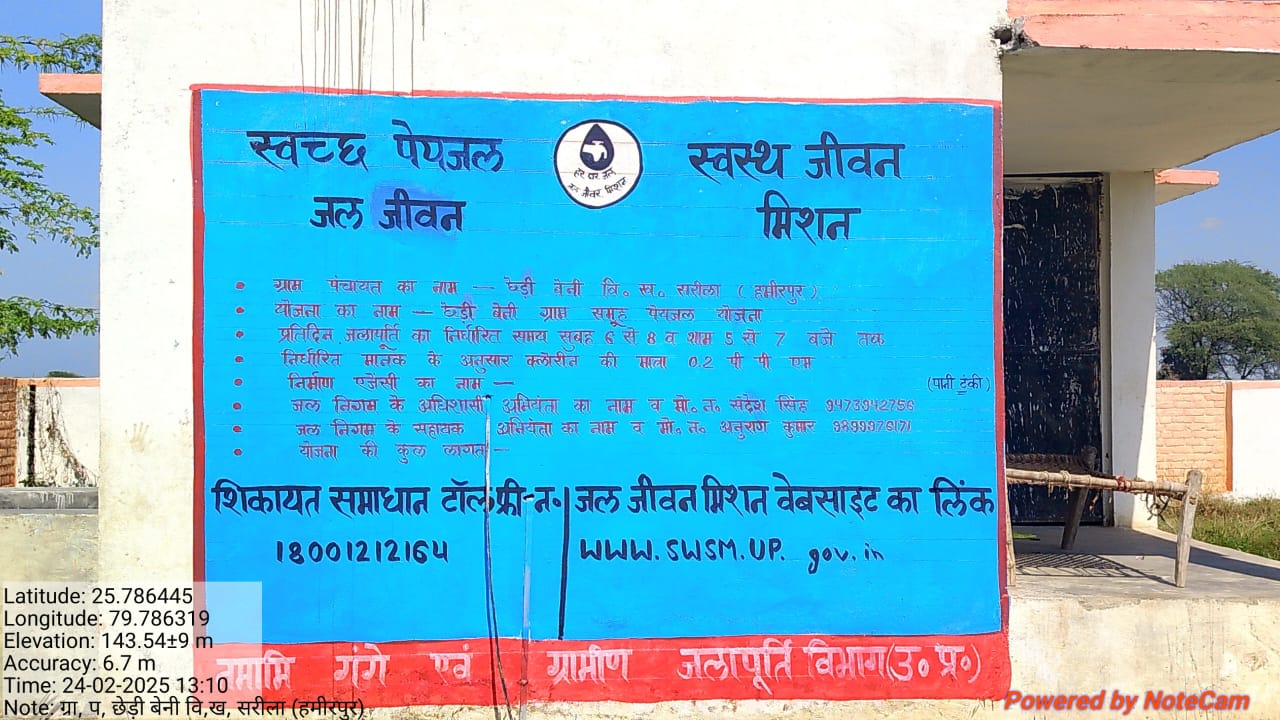 स्वच्छ पेयजल
स्वस्थ जीवन
हर घर जल
जल जीवन मिशन
जल जीवन
मिशन
• ग्राम पंचायत का नाम — छेड़ी बेनी वि० ख० सरीला (हमीरपुर)
• योजना का नाम — छेड़ी बेनी ग्राम समूह पेयजल योजना
• प्रतिदिन जलापूर्ति का निर्धारित समय सुबह 6 से 8 व शाम 5 से 7 बजे तक
• निर्धारित मानक के अनुसार क्लोरीन की मात्रा 0.2 पी पी एम
• निर्माण एजेंसी का नाम —
(पानी टंकी)
• जल निगम के अधिशासी अभियंता का नाम व मो० न० संदेश सिंह 9473942756
• जल निगम के सहायक अभियंता का नाम व मो० न० कुमार
• योजना की कुल लागत —
शिकायत समाधान टॉल फ्री-न०
18001212164
जल जीवन मिशन वेबसाइट का लिंक
WWW.SWSM.UP. gov.in
नमामि गंगे एवं ग्रामीण जलापूर्ति विभाग (उ० प्र०)
Latitude: 25.786445
Longitude: 79.786319
Elevation: 143.54±9 m
Accuracy: 6.7 m
Time: 24-02-2025 13:10
Note: ग्रा, प, छेड़ी बेनी वि,ख, सरीला (हमीरपुर)
Powered by NoteCam